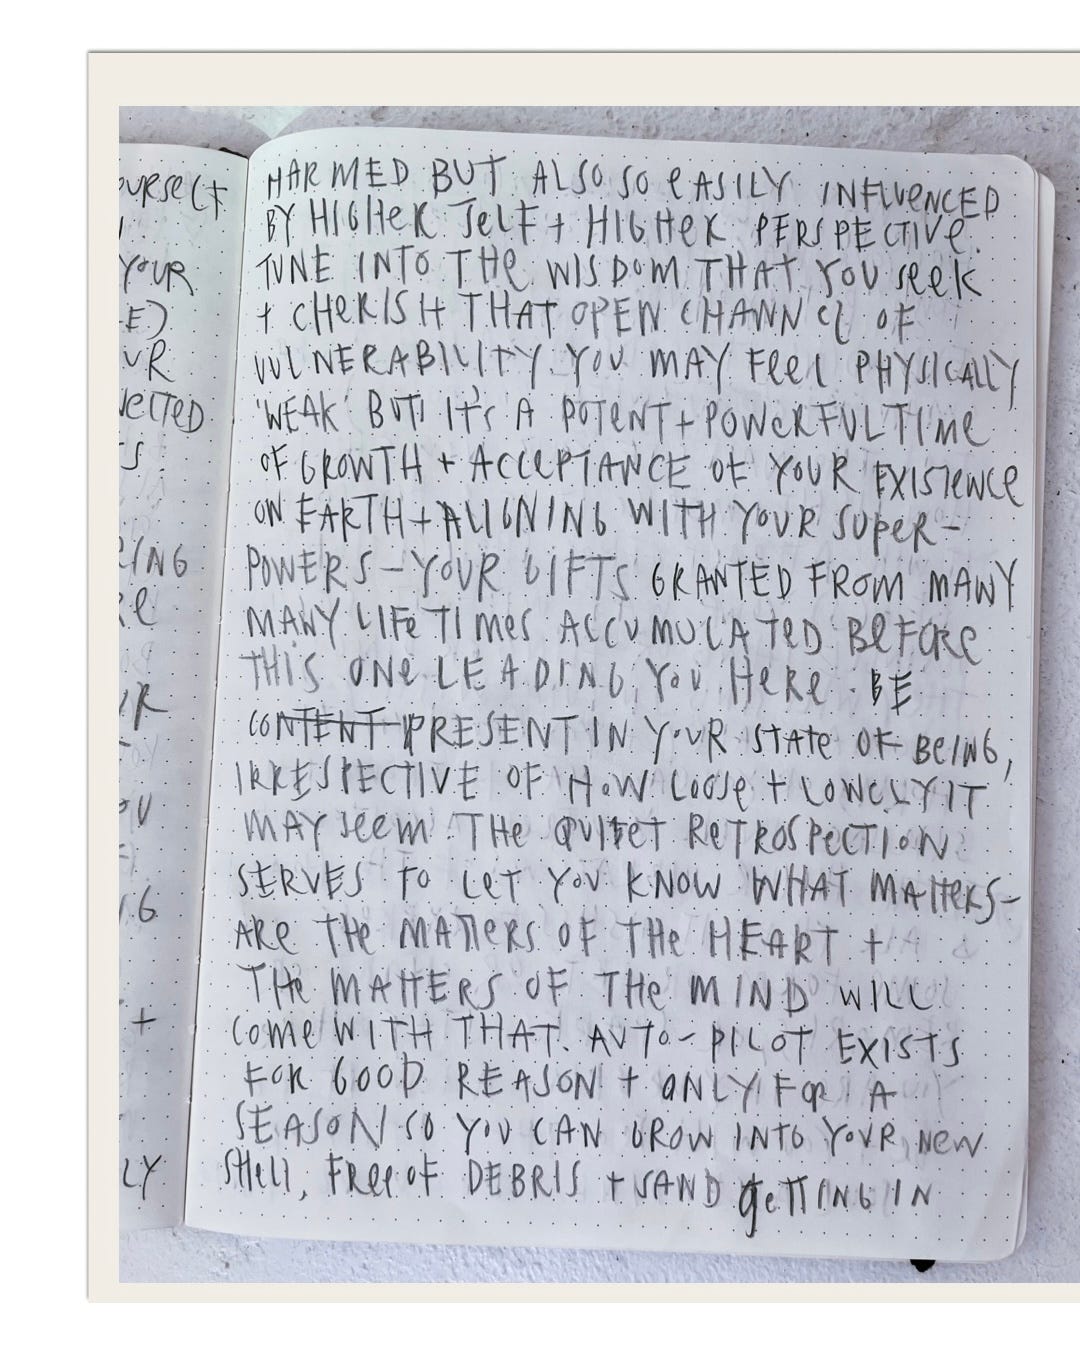 OURSELF
YOUR
E)
UR
NECTED
S.
ING
RE
UR
OU
+
LY
HARMED BUT ALSO SO EASILY INFLUENCED
BY HIGHER SELF + HIGHER PERSPECTIVE.
TUNE INTO THE WISDOM THAT YOU SEEK
+ CHERISH THAT OPEN CHANNEL OF
VULNERABILITY. YOU MAY FEEL PHYSICALLY
'WEAK' BUT IT'S A POTENT + POWERFUL TIME
OF GROWTH + ACCEPTANCE OF YOUR EXISTENCE
ON EARTH + ALIGNING WITH YOUR SUPER-
POWERS - YOUR GIFTS GRANTED FROM MANY
MANY LIFETIMES ACCUMULATED BEFORE
THIS ONE LEADING YOU HERE. BE
CONTENT PRESENT IN YOUR STATE OF BEING,
IRRESPECTIVE OF HOW LOOSE + LONELY IT
MAY SEEM. THE QUIET RETROSPECTION
SERVES TO LET YOU KNOW WHAT MATTERS-
ARE THE MATTERS OF THE HEART +
THE MATTERS OF THE MIND WILL
COME WITH THAT. AUTO-PILOT EXISTS
FOR GOOD REASON + ONLY FOR A
SEASON SO YOU CAN GROW INTO YOUR NEW
SHELL, FREE OF DEBRIS + SAND GETTING IN